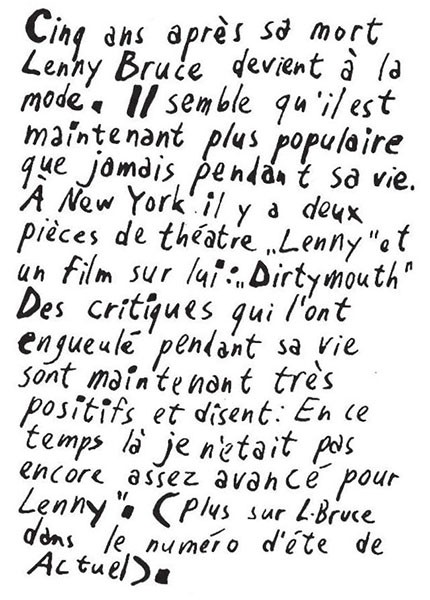 Cinq ans après sa mort
Lenny Bruce devient à la
mode. Il semble qu'il est
maintenant plus populaire
que jamais pendant sa vie.
À New York il y a deux
pièces de théatre „Lenny" et
un film sur lui: „Dirtymouth"
Des critiques qui l'ont
engueulé pendant sa vie
sont maintenant très
positifs et disent: En ce
temps là je n'etait pas
encore assez avancé pour
Lenny". (Plus sur L.Bruce
dans le numéro d'éte de
Actuel).